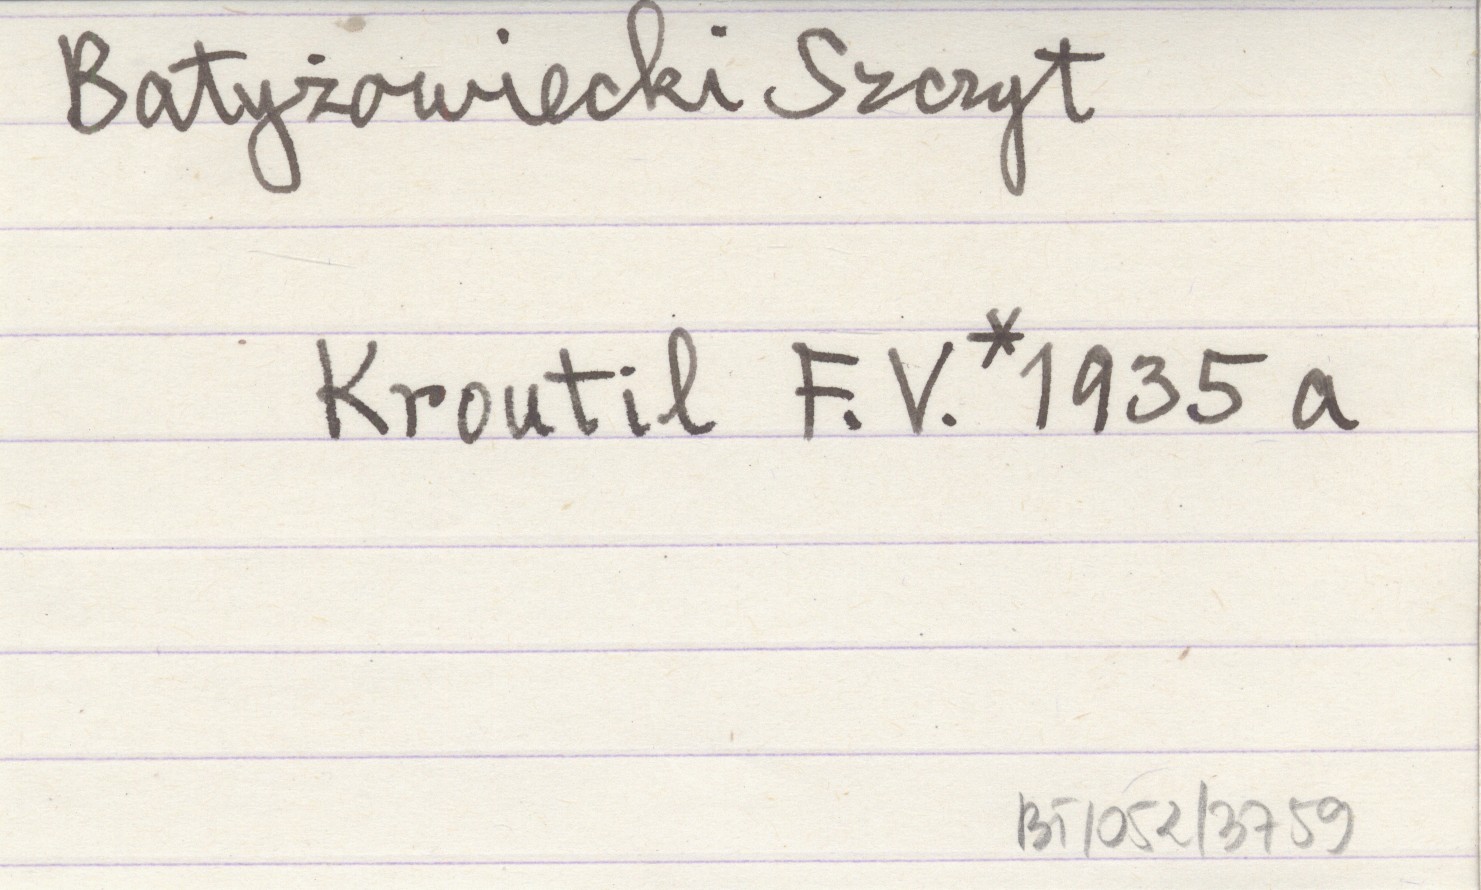 Batyżowiecki Szczyt
Kroutil F. V.* 1935 a
BT/052/3759